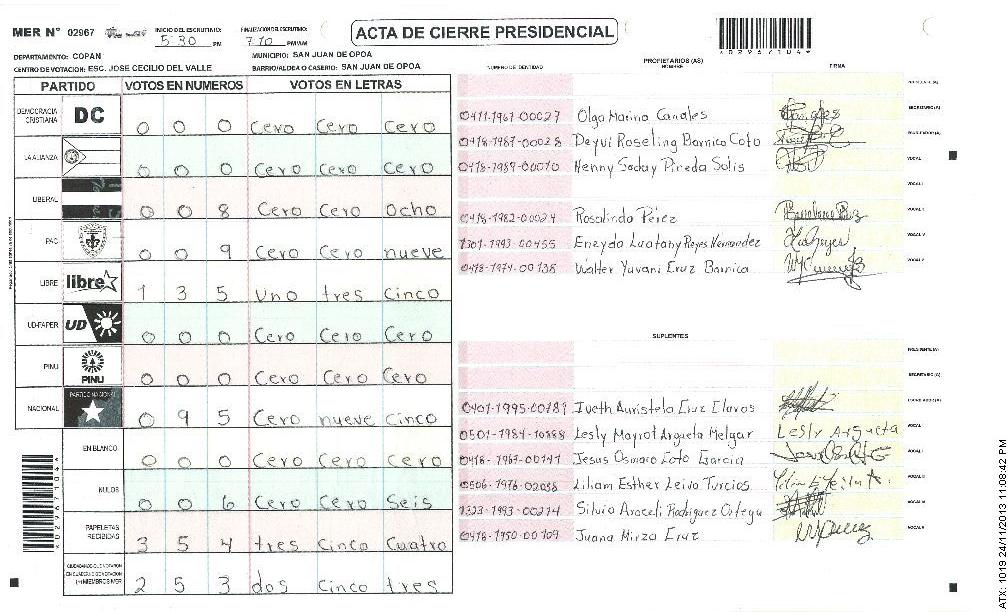 MER Nº 02967 INICIO DEL ESCRUTINIO: 5:30 PM FINALIZACION DEL ESCRUTINIO: 7:10 PM/AM
ACTA DE CIERRE PRESIDENCIAL
*029671044*
DEPARTAMENTO: COPAN MUNICIPIO: SAN JUAN DE OPOA
CENTRO DE VOTACION: ESC. JOSE CECILIO DEL VALLE BARRIO/ALDEA O CASERIO: SAN JUAN DE OPOA
PARTIDO VOTOS EN NUMEROS VOTOS EN LETRAS
DEMOCRACIA CRISTIANA DC 0 0 0 Cero Cero Cero
LA ALIANZA 0 0 0 Cero Cero Cero
LIBERAL 0 0 8 Cero Cero Ocho
PAC 0 0 9 Cero Cero nueve
LIBRE libre 1 3 5 Uno tres Cinco
UD-FAPER UD 0 0 0 Cero Cero Cero
PINU PINU 0 0 0 Cero Cero Cero
NACIONAL PARTIDO NACIONAL 0 9 5 Cero nueve Cinco
EN BLANCO 0 0 0 Cero Cero Cero
NULOS 0 0 6 Cero Cero Seis
PAPELETAS RECIBIDAS 3 5 4 tres Cinco Cuatro
CIUDADANOS QUE VOTARON EN CUADERNO DE VOTACION (+) MIEMBROS MER 2 5 3 dos Cinco tres
NUMERO DE IDENTIDAD PROPIETARIOS (AS) NOMBRE FIRMA
SECRETARIO(A)
0411-1961-00027 Olga Marina Canales
0418-1987-00028 Deyvi Roseling Barnica Coto
VOCAL
0418-1989-00070 Henny Saday Pineda Solis
VOCAL I
Rosalinda Pérez
1301-1993-00455 Eneyda Luatany Reyes Hernandez
0418-1974-00138 Walter Yuvani Cruz Barnica
SUPLENTES
PRESIDENTE(A)
SECRETARIO(A)
0401-1995-00781 Iveth Auristela Cruz
VOCAL
0501-1984-10888 Lesly Mayrot Argueta Melgar Lesly Argueta
0418-1967-00141 Jesus Osmaro Coto Garcia
0506-1976-02058 Liliam Esther Leiva Turcios
1323-1993-00214 Silvia Araceli Rodriguez Ortega
0418-1950-00109 Juana Mirza Cruz
ATX: 1019 24/11/2013 11:08:42 PM